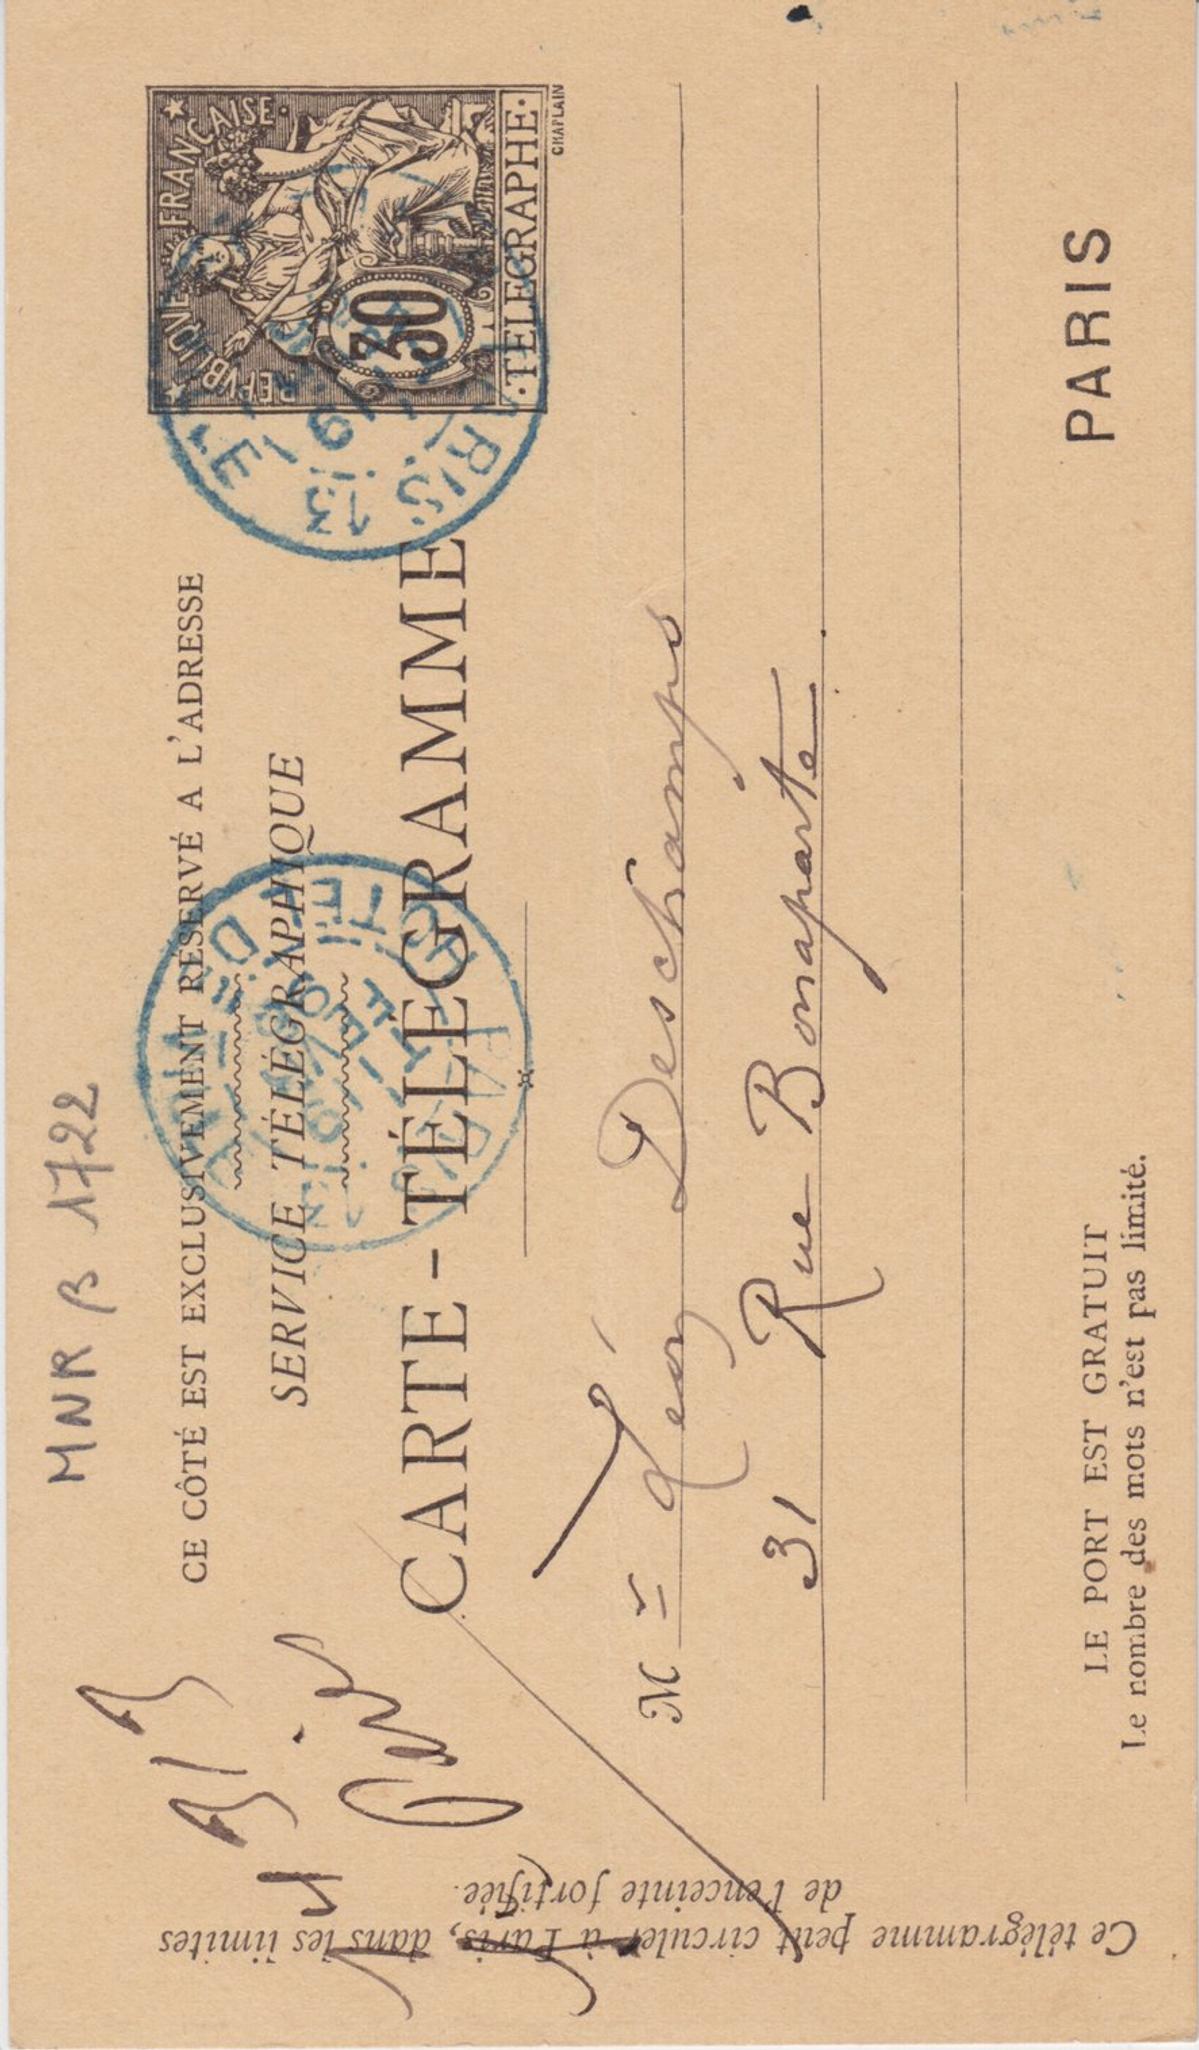 MNR B 1722
CE CÔTÉ EST EXCLUSIVEMENT RÉSERVÉ A L'ADRESSE
SERVICE TÉLÉGRAPHIQUE
CARTE-TÉLÉGRAMME
RÉPVBLIQVE FRANÇAISE
30
TÉLÉGRAPHE
CHAPLAIN
Ce télégramme peut circuler à Paris, dans les limites
de l'enceinte fortifiée.
M r Léon Deschamps
31 Rue Bonaparte
LE PORT EST GRATUIT
Le nombre des mots n'est pas limité.
PARIS